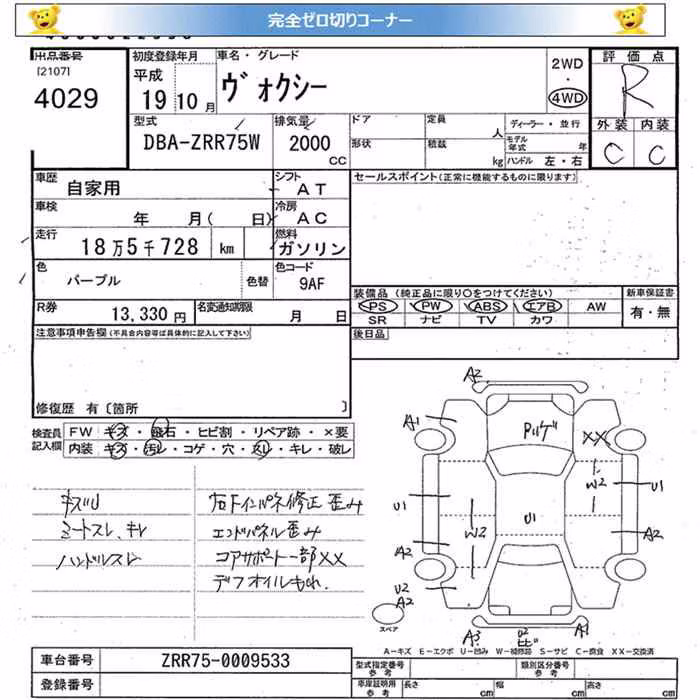 完全ゼロ切りコーナー
出品番号
[2107]
4029
初度登録年月
平成
19 10 月
車名・グレード
ヴォクシー
2WD
・
4WD
評価点
R
外装 内装
C C
型式
DBA-ZRR75W
排気量
2000
CC
ドア
定員
人
形状
積載
kg
ディーラー・並行
モデル年式 年
ハンドル 左・右
車歴
自家用
シフト
AT
セールスポイント(正常に機能するものに限ります)
車検
年 月( 日)
冷房
AC
走行
18万5千728 km
燃料
ガソリン
色
パープル
色替
色コード
9AF
装備品 (純正品に限り○をつけてください)
新車保証書
PS PW ABS エアB AW
有・無
SR ナビ TV カワ
R券
13,330 円
名変通知期限
月 日
後日品
注意事項申告欄(不具合内容等は具体的に記入して下さい)
修復歴 有〔箇所 〕
検査員
記入欄
FW キズ・飛石・ヒビ割・リペア跡・×要
内装 キズ・汚レ・コゲ・穴・スレ・キレ・破レ
キズU
シートスレ、キレ
ハンドルスレ
右ドインパネ修正歪み
エンドパネル歪み
コアサポート一部××
デフオイルもれ.
A2
A1
XX
W2
U1
U1
U1
W2
A2
A2
U2
A2
スペア
A3
U2
A1
A-キズ E-エクボ U-凹み W-補修跡 S-サビ C-腐食 XX-交換済
車台番号
ZRR75-0009533
登録番号
型式指定番号
参考
類別区分番号
参考
車庫証明用
参考
長さ cm
幅 cm
高さ cm